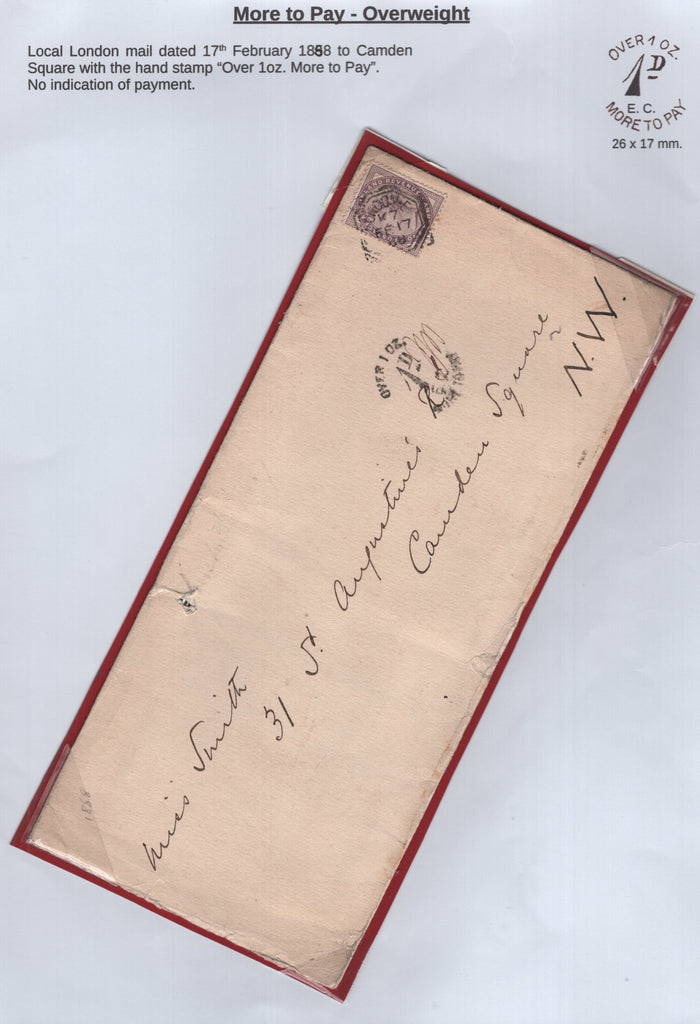 More to Pay - Overweight
Local London mail dated 17th February 1888 to Camden
Square with the hand stamp “Over 1oz. More to Pay”.
No indication of payment.
OVER 1 OZ.
1D
E. C.
MORE TO PAY
26 x 17 mm.
LAND REVENUE
FE 17
OVER 1 OZ.
1D
Miss Smith
31 St Augustine's Rd
Camden Square
N.W.
1888